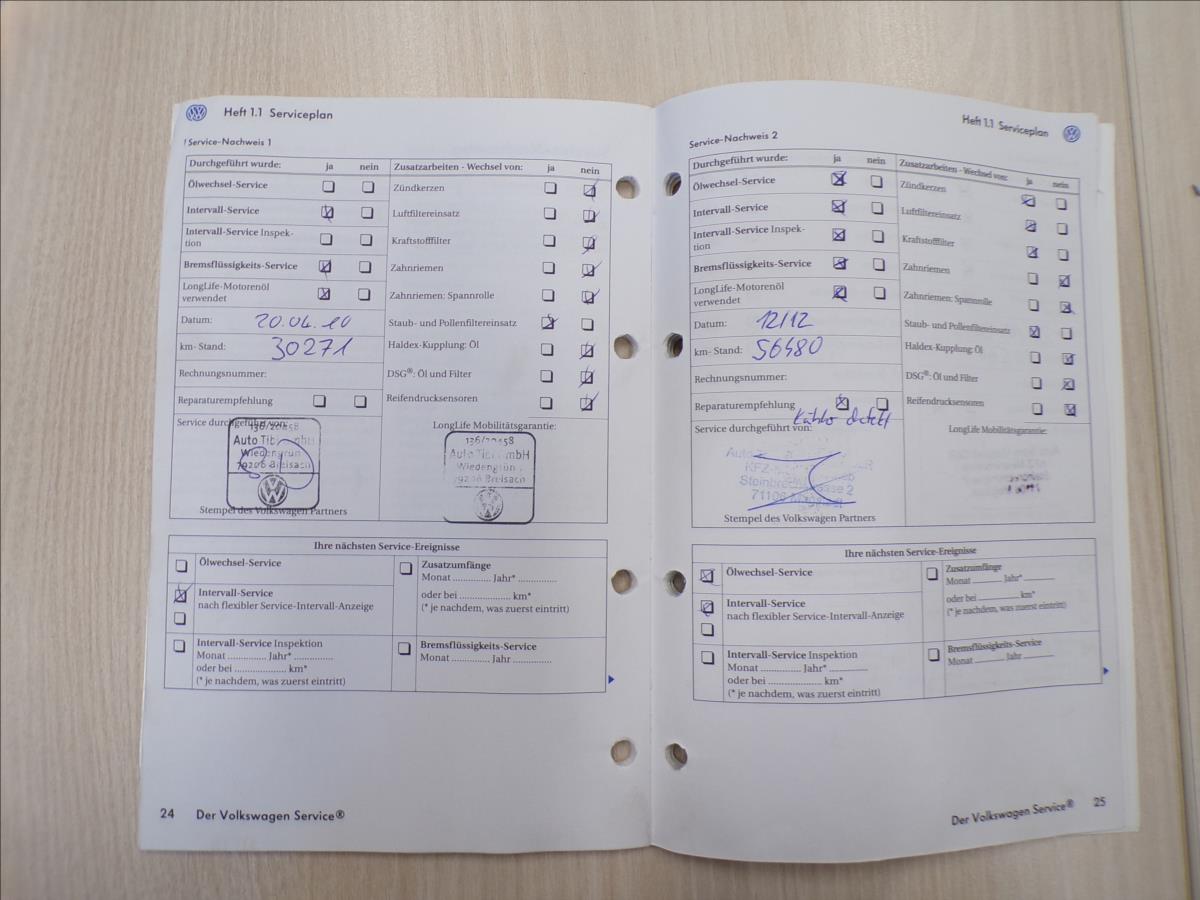 Heft 1.1 Serviceplan
Service-Nachweis 1
Durchgeführt wurde: ja nein
Ölwechsel-Service
Intervall-Service
Intervall-Service Inspek-
tion
Bremsflüssigkeits-Service
LongLife-Motorenöl
verwendet
Datum: 20.04.10
km- Stand: 30271
Rechnungsnummer:
Reparaturempfehlung
Service durchgeführt von:
Zusatzarbeiten - Wechsel von: ja nein
Zündkerzen
Luftfiltereinsatz
Kraftstofffilter
Zahnriemen
Zahnriemen: Spannrolle
Staub- und Pollenfiltereinsatz
Haldex-Kupplung: Öl
DSG®: Öl und Filter
Reifendrucksensoren
LongLife Mobilitätsgarantie:
136/20458
Auto
79206 Breisach
136/20458
Auto
79206 Breisach
Stempel des Volkswagen Partners
Ihre nächsten Service-Ereignisse
Ölwechsel-Service
Intervall-Service
nach flexibler Service-Intervall-Anzeige
Intervall-Service Inspektion
Monat ............. Jahr* .............
oder bei .................. km*
(* je nachdem, was zuerst eintritt)
Zusatzumfänge
Monat ............. Jahr* .............
oder bei .................. km*
(* je nachdem, was zuerst eintritt)
Bremsflüssigkeits-Service
Monat ............. Jahr .............
24 Der Volkswagen Service®
Heft 1.1 Serviceplan
Service-Nachweis 2
Durchgeführt wurde: ja nein
Ölwechsel-Service
Intervall-Service
Intervall-Service Inspek-
tion
Bremsflüssigkeits-Service
LongLife-Motorenöl
verwendet
Datum: 12/12
km- Stand: 56480
Rechnungsnummer:
Reparaturempfehlung
Service durchgeführt von:
Zusatzarbeiten - Wechsel von: ja nein
Zündkerzen
Luftfiltereinsatz
Kraftstofffilter
Zahnriemen
Zahnriemen: Spannrolle
Staub- und Pollenfiltereinsatz
Haldex-Kupplung: Öl
DSG®: Öl und Filter
Reifendrucksensoren
LongLife Mobilitätsgarantie:
Stempel des Volkswagen Partners
Ihre nächsten Service-Ereignisse
Ölwechsel-Service
Intervall-Service
nach flexibler Service-Intervall-Anzeige
Intervall-Service Inspektion
Monat ............. Jahr* .............
oder bei .................. km*
(* je nachdem, was zuerst eintritt)
Zusatzumfänge
Monat ............. Jahr* .............
oder bei .................. km*
(* je nachdem, was zuerst eintritt)
Bremsflüssigkeits-Service
Monat ............. Jahr .............
Der Volkswagen Service® 25